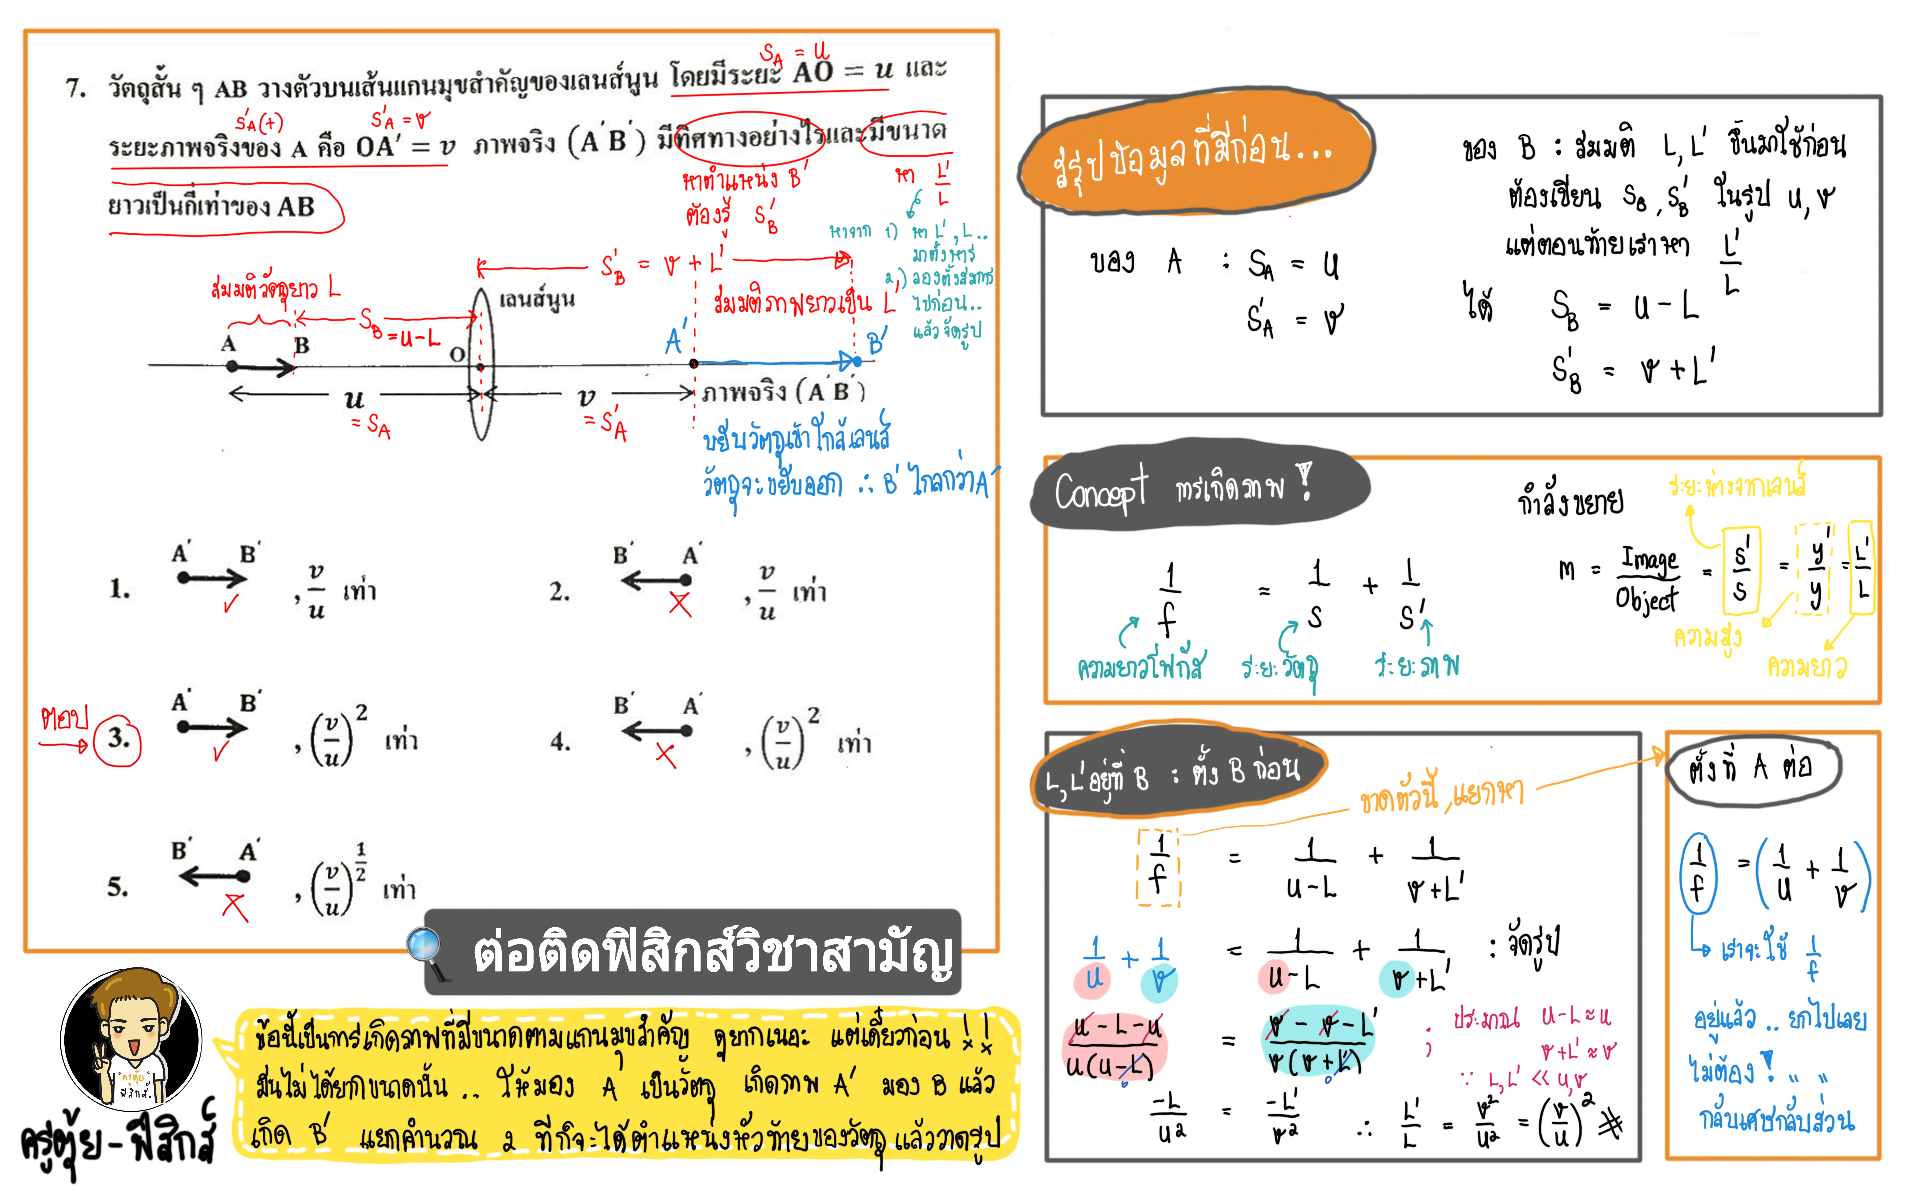 7. วัตถุสั้น ๆ AB วางตัวบนเส้นแกนมุขสำคัญของเลนส์นูน โดยมีระยะ AO = u และ
S_A = u
S'_A(+)
S'_A = v
ระยะภาพจริงของ A คือ OA' = v ภาพจริง (A'B') มีทิศทางอย่างไรและมีขนาด
ยาวเป็นกี่เท่าของ AB
หาตำแหน่ง B'
ต้องรู้ S'_B
หา L'/L
หาจาก 1) หา L', L..
มาตั้งหาร
2.) ลองตั้งสมการ
ไปก่อน..
แล้วจัดรูป
สมมติวัตถุยาว L
S_B = u-L
S'_B = v + L'
เลนส์นูน
สมมติภาพยาวเป็น L'
A B O A' B'
u v ภาพจริง (A'B')
= S_A = S'_A
ขยับวัตถุเข้าใกล้เลนส์
วัตถุจะขยับออก ∴ B' ไกลกว่า A'
1. A' B' , v/u เท่า
2. B' A' , v/u เท่า
ตอบ
3. A' B' , (v/u)² เท่า
4. B' A' , (v/u)² เท่า
5. B' A' , (v/u)^(1/2) เท่า
ต่อติดฟิสิกส์วิชาสามัญ
ครูตุ้ย
ฟิสิกส์
ครูตุ้ย-ฟิสิกส์
ข้อนี้เป็นการเกิดภาพที่มีขนาดตามแกนมุขสำคัญ ดูยากเนอะ แต่เดี๋ยวก่อน !!
มันไม่ได้ยากขนาดนั้น .. ให้มอง A เป็นวัตถุ เกิดภาพ A' มอง B แล้ว
เกิด B' แยกคำนวณ 2 ทีก็จะได้ตำแหน่งหัวท้ายของวัตถุ แล้ววาดรูป
สรุปข้อมูลที่มีก่อน...
ของ A : S_A = u
S'_A = v
ของ B : สมมติ L, L' ขึ้นมาใช้ก่อน
ต้องเขียน S_B, S'_B ในรูป u, v
แต่ตอนท้ายเราหา L'/L
ได้ S_B = u-L
S'_B = v+L'
Concept การเกิดภาพ !
1/f = 1/s + 1/s'
ความยาวโฟกัส ระยะวัตถุ ระยะภาพ
กำลังขยาย
ระยะห่างจากเลนส์
m = Image/Object = s'/s = y'/y = L'/L
ความสูง
ความยาว
L, L' อยู่ที่ B : ตั้ง B ก่อน
ขาดตัวนี้, แยกหา
1/f = 1/(u-L) + 1/(v+L')
1/u + 1/v = 1/(u-L) + 1/(v+L') : จัดรูป
(u-L-u)/(u(u-L)) = (v-v-L')/(v(v+L')) ; ประมาณ u-L ≈ u
v+L' ≈ v
∵ L, L' << u, v
-L/u² = -L'/v² ∴ L'/L = v²/u² = (v/u)² #
ตั้งที่ A ต่อ
1/f = (1/u + 1/v)
เราจะใช้ 1/f
อยู่แล้ว .. ยกไปเลย
ไม่ต้อง ! " "
กลับเศษกลับส่วน